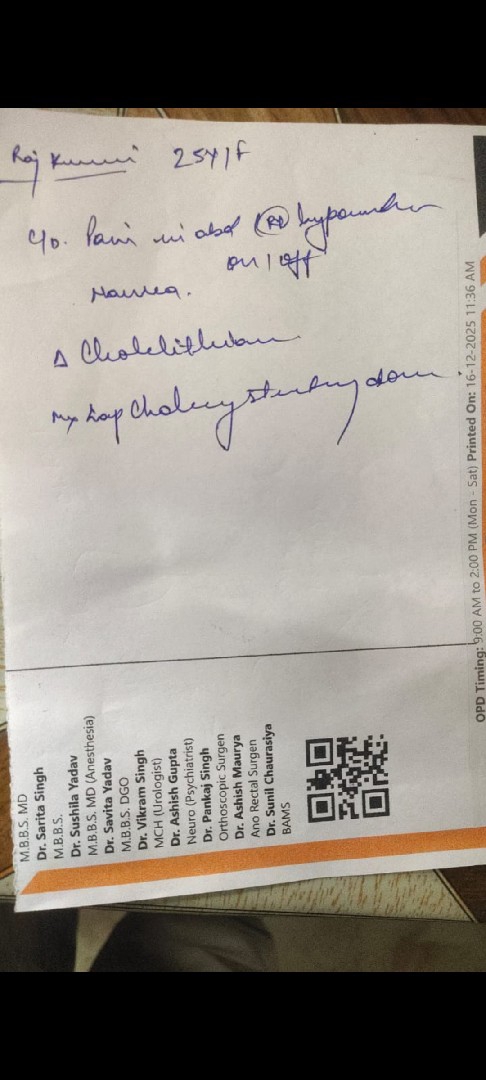 Raj Kumari 25Y/F
C/o. Pain in abd (Rt) hypochondr
on / off
Nausea.
Δ Cholelithiasis
Mx Lap Cholecystectomy done.
M.B.B.S. MD
Dr. Sarita Singh
M.B.B.S.
Dr. Sushila Yadav
M.B.B.S. MD (Anesthesia)
Dr. Savita Yadav
M.B.B.S. DGO
Dr. Vikram Singh
MCH (Urologist)
Dr. Ashish Gupta
Neuro (Psychiatrist)
Dr. Pankaj Singh
Orthoscopic Surgen
Dr. Ashish Maurya
Ano Rectal Surgen
Dr. Sunil Chaurasiya
BAMS
OPD Timing: 9:00 AM to 2:00 PM (Mon - Sat) Printed On: 16-12-2025 11:36 AM